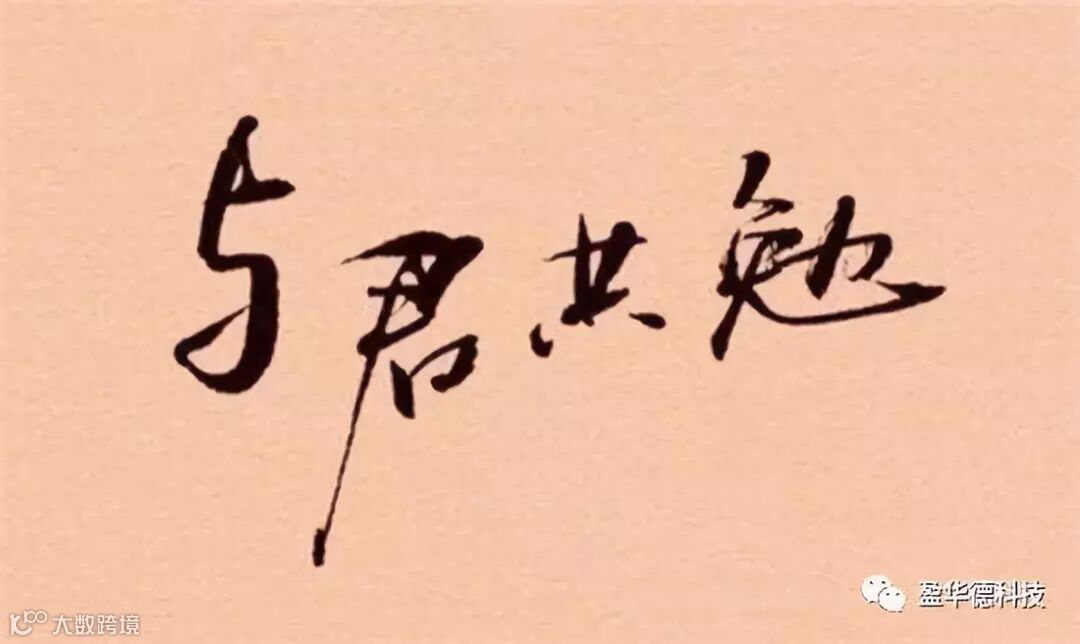 与君共勉
盈华德科技
大数跨境